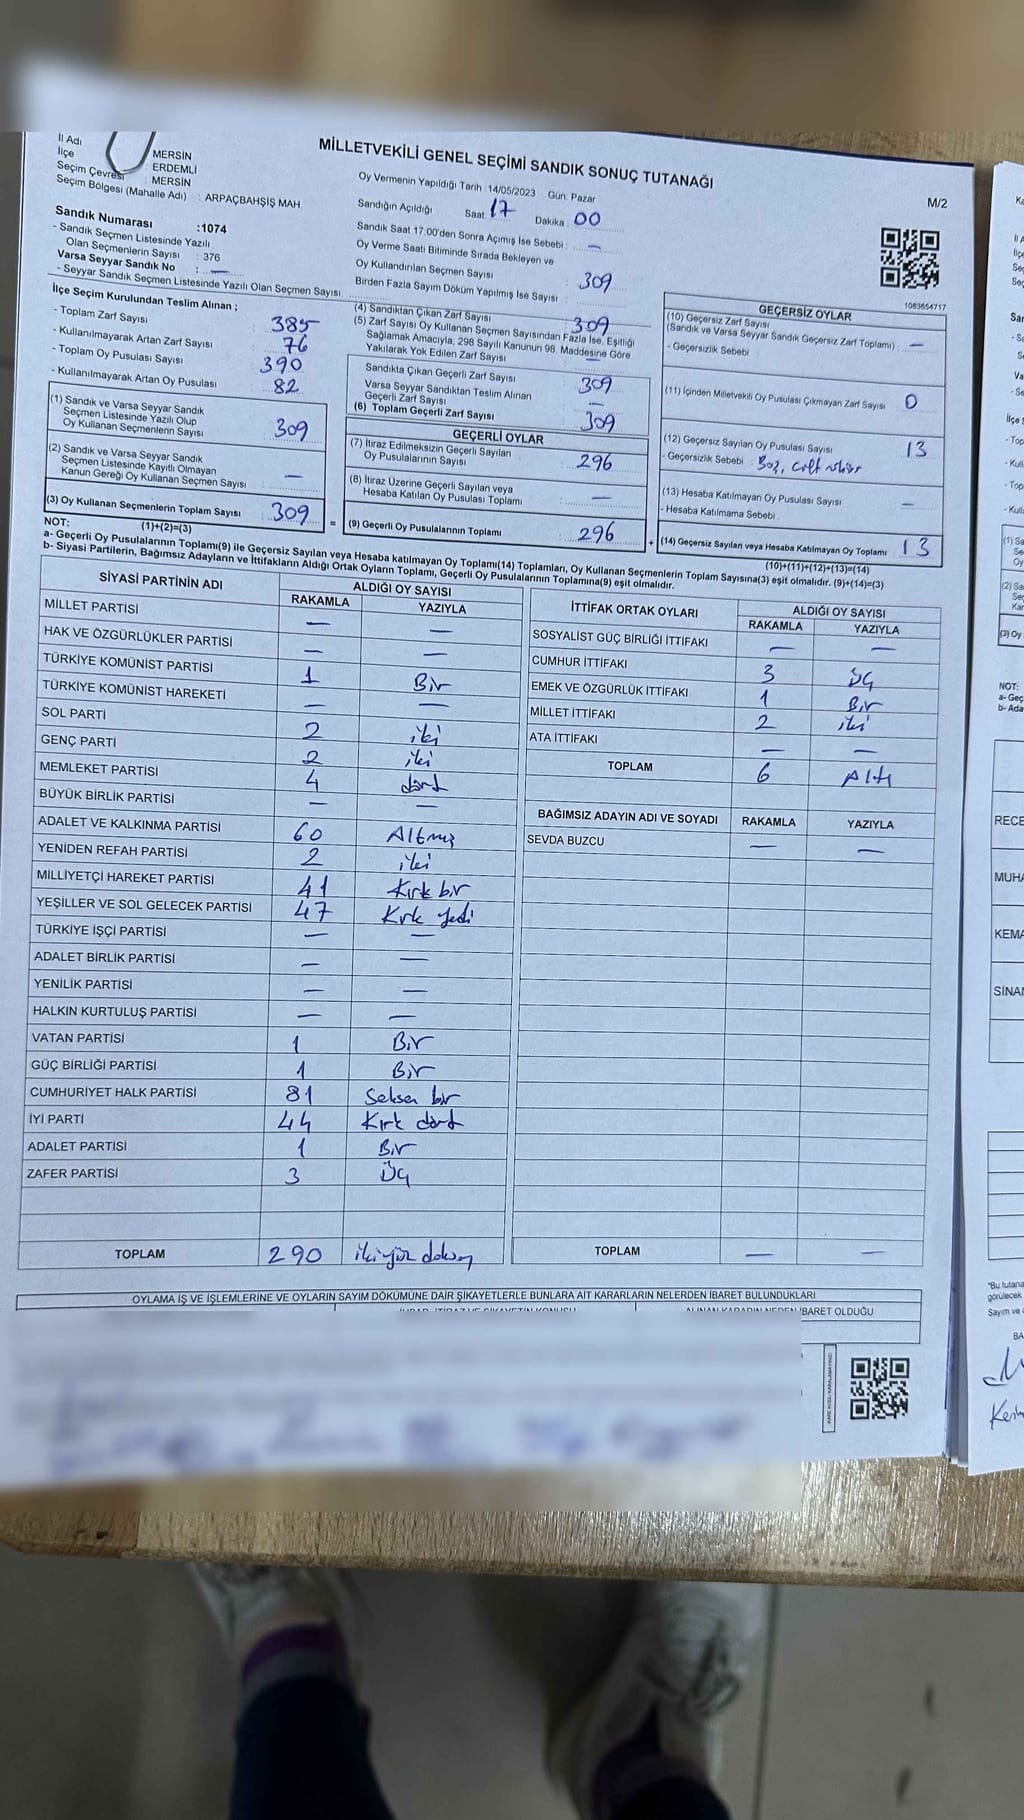 MİLLETVEKİLİ GENEL SEÇİMİ SANDIK SONUÇ TUTANAĞI
M/2
İl Adı : MERSİN
İlçe : ERDEMLİ
Seçim Çevresi : MERSİN
Seçim Bölgesi (Mahalle Adı) : ARPAÇBAHŞİŞ MAH.
Oy Vermenin Yapıldığı Tarih :14/05/2023 Gün: Pazar
Sandığın Açıldığı Saat: 17 Dakika: 00
Sandık Saat 17.00'den Sonra Açımış İse Sebebi : —
Oy Verme Saati Bitiminde Sırada Bekleyen ve
Oy Kullandırılan Seçmen Sayısı : 309
Birden Fazla Sayım Döküm Yapılmış İse Sayısı :
Sandık Numarası :1074
- Sandık Seçmen Listesinde Yazılı
Olan Seçmenlerin Sayısı : 376
Varsa Seyyar Sandık No : —
- Seyyar Sandık Seçmen Listesinde Yazılı Olan Seçmen Sayısı:
1083654717
İlçe Seçim Kurulundan Teslim Alınan ;
- Toplam Zarf Sayısı : 385
- Kullanılmayarak Artan Zarf Sayısı : 76
- Toplam Oy Pusulası Sayısı : 390
- Kullanılmayarak Artan Oy Pusulası : 82
(1) Sandık ve Varsa Seyyar Sandık
Seçmen Listesinde Yazılı Olup
Oy Kullanan Seçmenlerin Sayısı : 309
(2) Sandık ve Varsa Seyyar Sandık
Seçmen Listesinde Kayıtlı Olmayan
Kanun Gereği Oy Kullanan Seçmen Sayısı : —
(3) Oy Kullanan Seçmenlerin Toplam Sayısı : 309
(4) Sandıktan Çıkan Zarf Sayısı : 309
(5) Zarf Sayısı Oy Kullanan Seçmen Sayısından Fazla İse, Eşitliği
Sağlamak Amacıyla, 298 Sayılı Kanunun 98. Maddesine Göre
Yakılarak Yok Edilen Zarf Sayısı : —
Sandıkta Çıkan Geçerli Zarf Sayısı : 309
Varsa Seyyar Sandıktan Teslim Alınan
Geçerli Zarf Sayısı : —
(6) Toplam Geçerli Zarf Sayısı : 309
GEÇERLİ OYLAR
(7) İtiraz Edilmeksizin Geçerli Sayılan
Oy Pusulalarının Sayısı : 296
(8) İtiraz Üzerine Geçerli Sayılan veya
Hesaba Katılan Oy Pusulası Toplamı : —
= (9) Geçerli Oy Pusulalarının Toplamı : 296
GEÇERSİZ OYLAR
(10) Geçersiz Zarf Sayısı
(Sandık ve Varsa Seyyar Sandık Geçersiz Zarf Toplamı) : —
- Geçersizlik Sebebi :
(11) İçinden Milletvekili Oy Pusulası Çıkmayan Zarf Sayısı : 0
(12) Geçersiz Sayılan Oy Pusulası Sayısı : 13
- Geçersizlik Sebebi : Boş, çift mühür
(13) Hesaba Katılmayan Oy Pusulası Sayısı : —
- Hesaba Katılmama Sebebi :
+ (14) Geçersiz Sayılan veya Hesaba Katılmayan Oy Toplamı : 13
NOT: (1)+(2)=(3)
(10)+(11)+(12)+(13)=(14)
a- Geçerli Oy Pusulalarının Toplamı(9) ile Geçersiz Sayılan veya Hesaba katılmayan Oy Toplamı(14) Toplamları, Oy Kullanan Seçmenlerin Toplam Sayısına(3) eşit olmalıdır. (9)+(14)=(3)
b- Siyasi Partilerin, Bağımsız Adayların ve İttifakların Aldığı Ortak Oyların Toplamı, Geçerli Oy Pusulalarının Toplamına(9) eşit olmalıdır.
SİYASİ PARTİNİN ADI ALDIĞI OY SAYISI
RAKAMLA YAZIYLA
MİLLET PARTİSİ — —
HAK VE ÖZGÜRLÜKLER PARTİSİ — —
TÜRKİYE KOMÜNİST PARTİSİ 1 Bir
TÜRKİYE KOMÜNİST HAREKETİ — —
SOL PARTİ 2 iki
GENÇ PARTİ 2 iki
MEMLEKET PARTİSİ 4 dört
BÜYÜK BİRLİK PARTİSİ — —
ADALET VE KALKINMA PARTİSİ 60 Altmış
YENİDEN REFAH PARTİSİ 2 iki
MİLLİYETÇİ HAREKET PARTİSİ 41 Kırk bir
YEŞİLLER VE SOL GELECEK PARTİSİ 47 Kırk yedi
TÜRKİYE İŞÇİ PARTİSİ — —
ADALET BİRLİK PARTİSİ — —
YENİLİK PARTİSİ — —
HALKIN KURTULUŞ PARTİSİ — —
VATAN PARTİSİ 1 Bir
GÜÇ BİRLİĞİ PARTİSİ 1 Bir
CUMHURİYET HALK PARTİSİ 81 Seksen bir
İYİ PARTİ 44 Kırk dört
ADALET PARTİSİ 1 Bir
ZAFER PARTİSİ 3 Üç
TOPLAM 290 ikiyüz doksan
İTTİFAK ORTAK OYLARI ALDIĞI OY SAYISI
RAKAMLA YAZIYLA
SOSYALİST GÜÇ BİRLİĞİ İTTİFAKI — —
CUMHUR İTTİFAKI 3 Üç
EMEK VE ÖZGÜRLÜK İTTİFAKI 1 Bir
MİLLET İTTİFAKI 2 iki
ATA İTTİFAKI — —
TOPLAM 6 Altı
BAĞIMSIZ ADAYIN ADI VE SOYADI RAKAMLA YAZIYLA
SEVDA BUZCU — —
TOPLAM — —
OYLAMA İŞ VE İŞLEMLERİNE VE OYLARIN SAYIM DÖKÜMÜNE DAİR ŞİKAYETLERLE BUNLARA AİT KARARLARIN NELERDEN İBARET BULUNDUKLARI
ALINAN KARARIN NEDEN İBARET OLDUĞU
RECE
MUHA
KEMA
SİNAN
*Bu tutana
görülecek
Sayım ve
BA